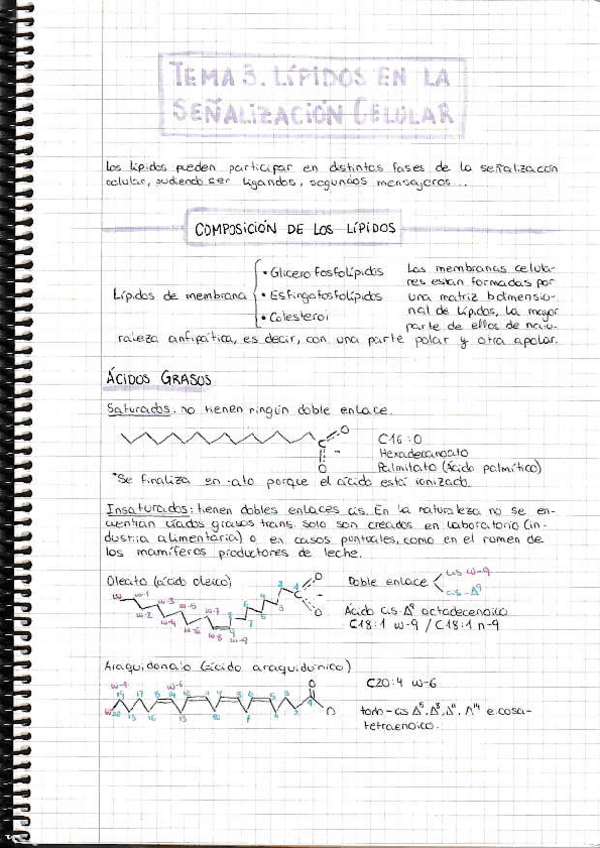 TEMA 3. LÍPIDOS EN LA
SEÑALIZACIÓN CELULAR
Los lípidos pueden participar en distintas fases de la señalización
celular, pudiendo ser ligandos, segundos mensajeros...
COMPOSICIÓN DE LOS LÍPIDOS
Lípidos de membrana
• Glicerofosfolípidos
• Esfingofosfolípidos
• Colesterol
Las membranas celula-
res están formadas por
una matriz bidimensio-
nal de lípidos, la mayor
parte de ellos de natu-
raleza anfipática, es decir, con una parte polar y otra apolar.
ÁCIDOS GRASOS
Saturados. no tienen ningún doble enlace.
C O O -
C16:0
Hexadecanoato
Palmitato (ácido palmítico)
*Se finaliza en -ato porque el ácido está ionizado.
Insaturados: tienen dobles enlaces cis. En la naturaleza no se en-
cuentran ácidos grasos trans. solo son creados en laboratorio (in-
dustria alimentaria) o en casos puntuales, como en el rumen de
los mamíferos productores de leche.
Oleato (ácido oleico)
Doble enlace
cis ω-9
cis-Δ⁹
Ácido cis-Δ⁹ octadecenoico
C18:1 ω-9 / C18:1 n-9
ω ω-1 ω-2 ω-3 ω-4 ω-5 ω-6 ω-7 ω-8 ω-9
Araquidonato (ácido araquidónico)
C20:4 ω-6
todo-cis Δ⁵, Δ⁸, Δ¹¹, Δ¹⁴ eicosa-
tetraenoico.